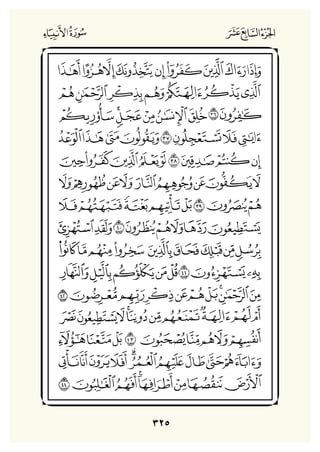 الجُزْءُ السَّابِعَ عَشَرَ
سُورَةُ الأَنبِيَاءِ
وَإِذَا رَءَاكَ ٱلَّذِينَ كَفَرُوٓا۟ إِن يَتَّخِذُونَكَ إِلَّا هُزُوًا أَهَٰذَا
ٱلَّذِى يَذْكُرُ ءَالِهَتَكُمْ وَهُم بِذِكْرِ ٱلرَّحْمَٰنِ هُمْ
كَٰفِرُونَ ٣٦ خُلِقَ ٱلْإِنسَٰنُ مِنْ عَجَلٍ ۚ سَأُو۟رِيكُمْ
ءَايَٰتِى فَلَا تَسْتَعْجِلُونِ ٣٧ وَيَقُولُونَ مَتَىٰ هَٰذَا ٱلْوَعْدُ
إِن كُنتُمْ صَٰدِقِينَ ٣٨ لَوْ يَعْلَمُ ٱلَّذِينَ كَفَرُوا۟ حِينَ
لَا يَكُفُّونَ عَن وُجُوهِهِمُ ٱلنَّارَ وَلَا عَن ظُهُورِهِمْ وَلَا
هُمْ يُنصَرُونَ ٣٩ بَلْ تَأْتِيهِم بَغْتَةً فَتَبْهَتُهُمْ فَلَا
يَسْتَطِيعُونَ رَدَّهَا وَلَا هُمْ يُنظَرُونَ ٤٠ وَلَقَدِ ٱسْتُهْزِئَ
بِرُسُلٍ مِّن قَبْلِكَ فَحَاقَ بِٱلَّذِينَ سَخِرُوا۟ مِنْهُم مَّا كَانُوا۟
بِهِۦ يَسْتَهْزِءُونَ ٤١ قُلْ مَن يَكْلَؤُكُم بِٱلَّيْلِ وَٱلنَّهَارِ
مِنَ ٱلرَّحْمَٰنِ ۗ بَلْ هُمْ عَن ذِكْرِ رَبِّهِم مُّعْرِضُونَ ٤٢
أَمْ لَهُمْ ءَالِهَةٌ تَمْنَعُهُم مِّن دُونِنَا ۚ لَا يَسْتَطِيعُونَ نَصْرَ
أَنفُسِهِمْ وَلَا هُم مِّنَّا يُصْحَبُونَ ٤٣ بَلْ مَتَّعْنَا هَٰٓؤُلَآءِ
وَءَابَآءَهُمْ حَتَّىٰ طَالَ عَلَيْهِمُ ٱلْعُمُرُ ۗ أَفَلَا يَرَوْنَ أَنَّا نَأْتِى
ٱلْأَرْضَ نَنقُصُهَا مِنْ أَطْرَافِهَآ ۚ أَفَهُمُ ٱلْغَٰلِبُونَ ٤٤
٣٢٥